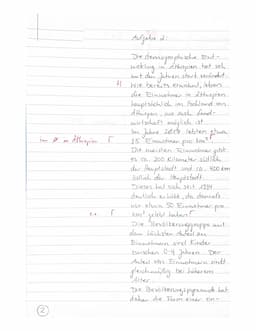 Aufgabe 2:
Die demographische Ent-
wicklung in Äthiopien hat sich
mit den Jahren stark verändert.
A) Wie bereits erwähnt, leben
die Einwohner in Äthiopien
hauptsächlich im Hochland von
Äthiopien, wo auch Land-
wirtschaft möglich ist.
Im Jahre lebten etwa
Γ 25 Einwohner pro km²
Die meisten Einwohner gibt
es ca. 200 Kilometer südlich
der Hauptstadt und ca. 400 km
östlich der Hauptstadt.
Dieses hat sich seit 1994
deutlich erhöht, da damals
nur etwa 50 Einwohner pro
Γ km² gelebt haben.
Die Bevölkerungsgruppe mit
dem höchsten Anteil an
Einwohnern sind Kinder
zwischen 0-4 Jahren. Der
Anteil der Einwohner sinkt
gleichmäßig bei höherem
Alter.
Die Bevölkerungspyramide hat
daher die Form einer
2